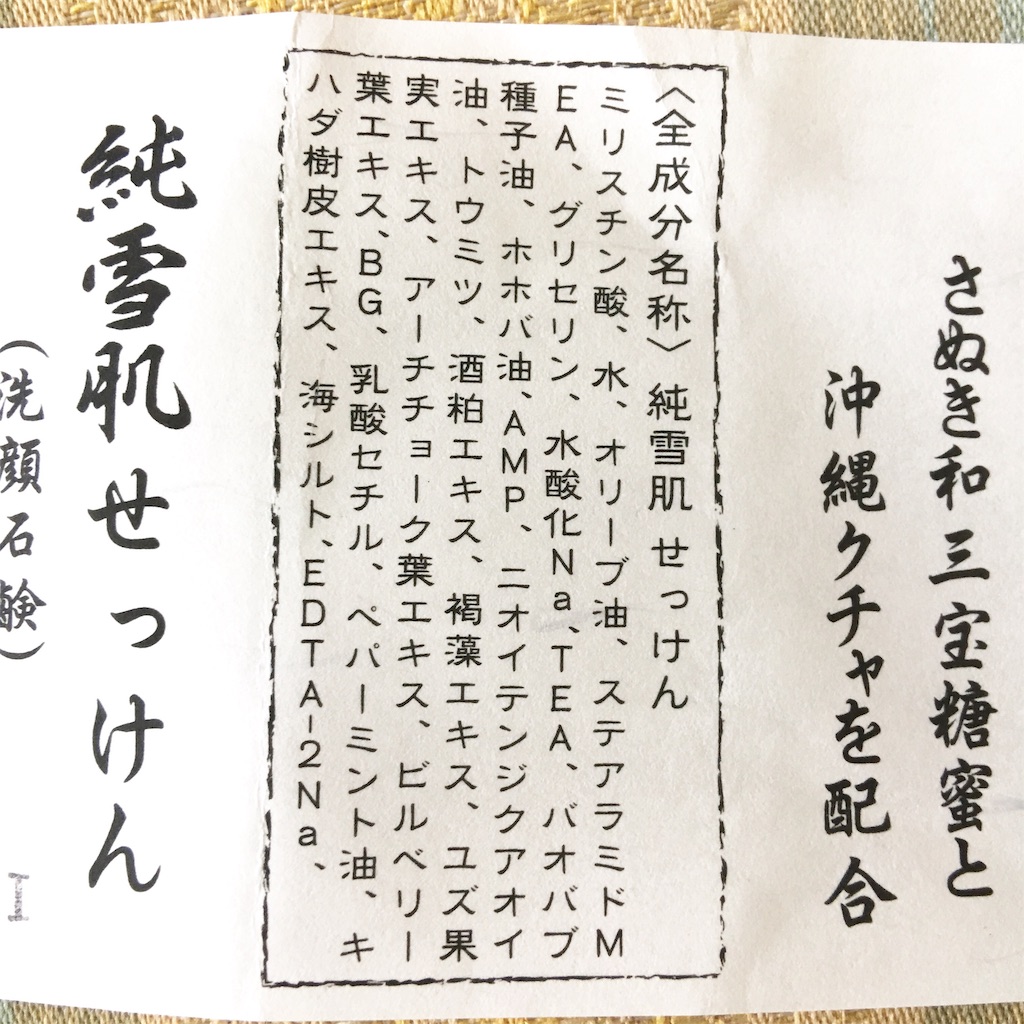 さぬき和三宝糖蜜と
沖縄クチャを配合
〈全成分名称〉純雪肌せっけん
ミリスチン酸、水、オリーブ油、ステアラミドM
EA、グリセリン、水酸化Na、TEA、バオバブ
種子油、ホホバ油、AMP、ニオイテンジクアオイ
油、トウミツ、酒粕エキス、褐藻エキス、ユズ果
実エキス、アーチチョーク葉エキス、ビルベリー
葉エキス、BG、乳酸セチル、ペパーミント油、キ
ハダ樹皮エキス、海シルト、EDTA-2Na、
純雪肌せっけん
(洗顔石鹸)
I